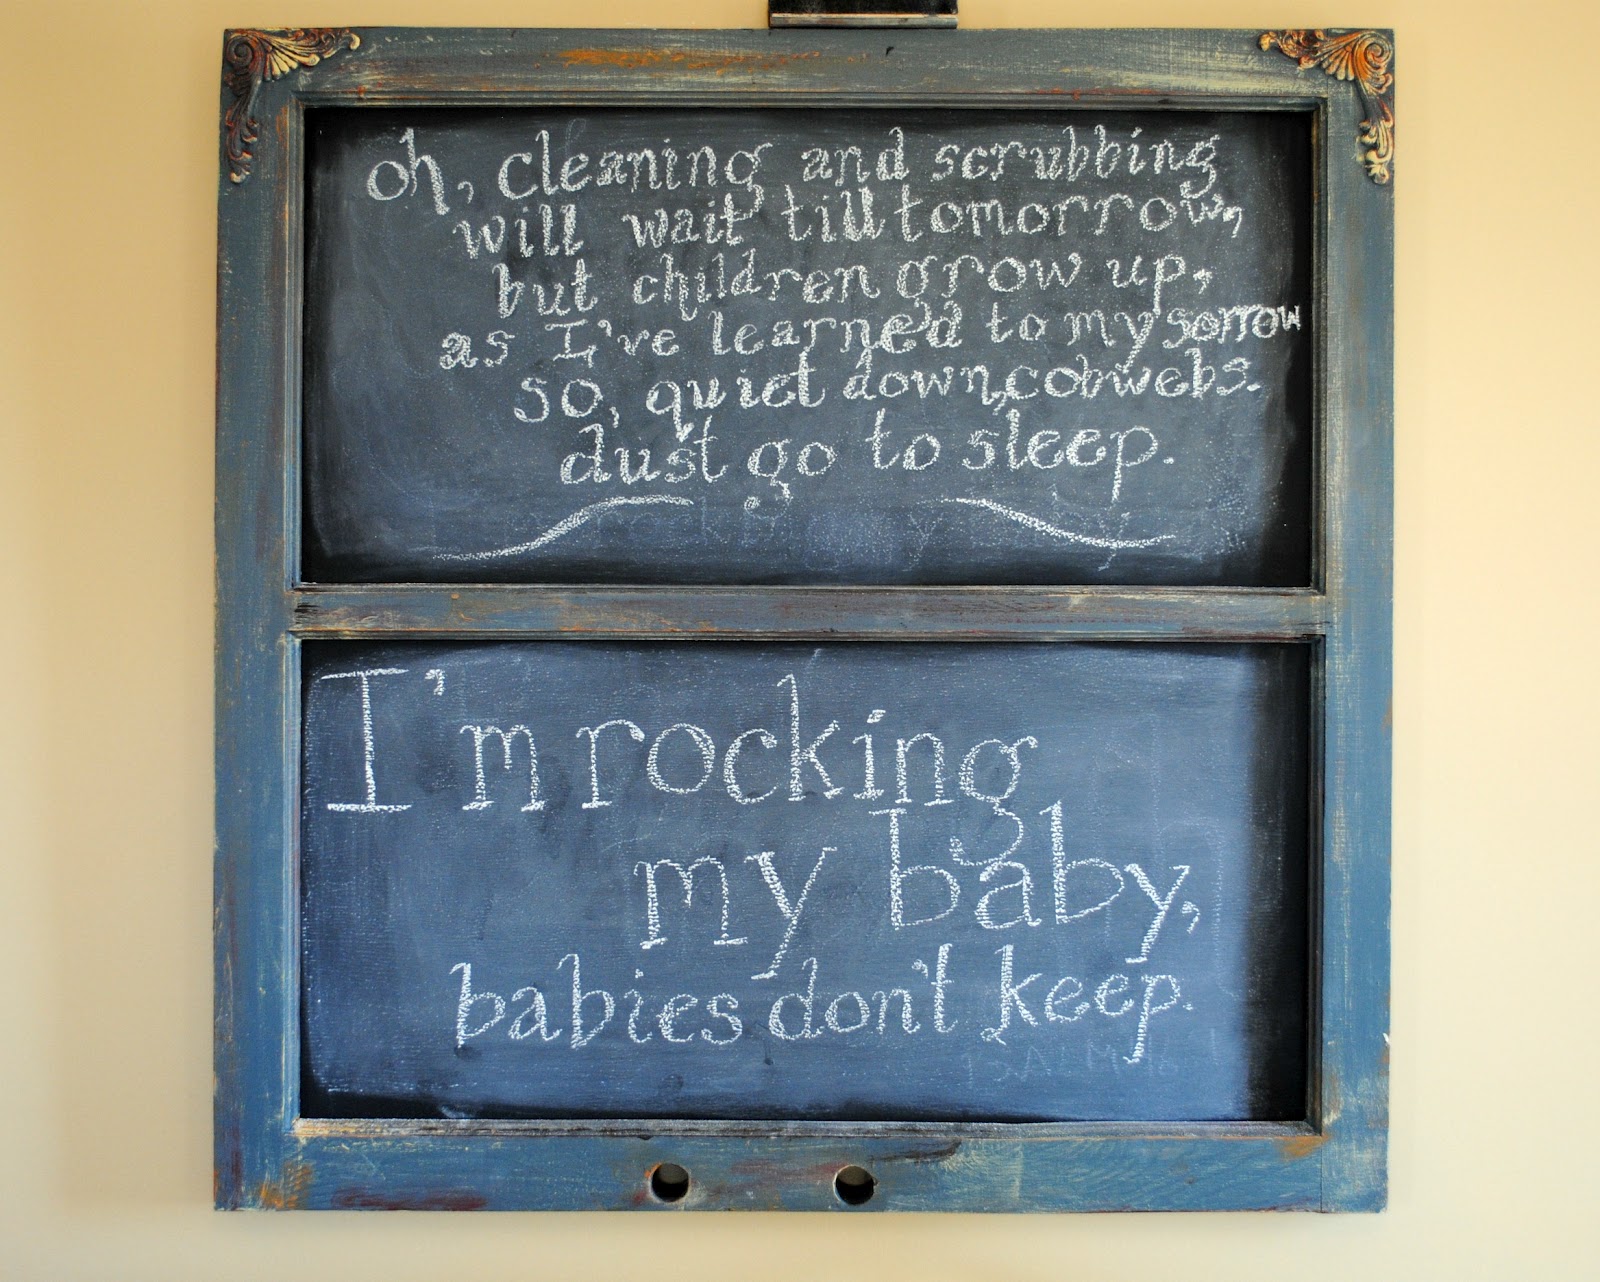 oh, cleaning and scrubbing
will wait till tomorrow,
but children grow up,
as I've learned to my sorrow
so, quiet down, cobwebs.
dust go to sleep.
I'm rocking
my baby,
babies don't keep.
PSALM 16